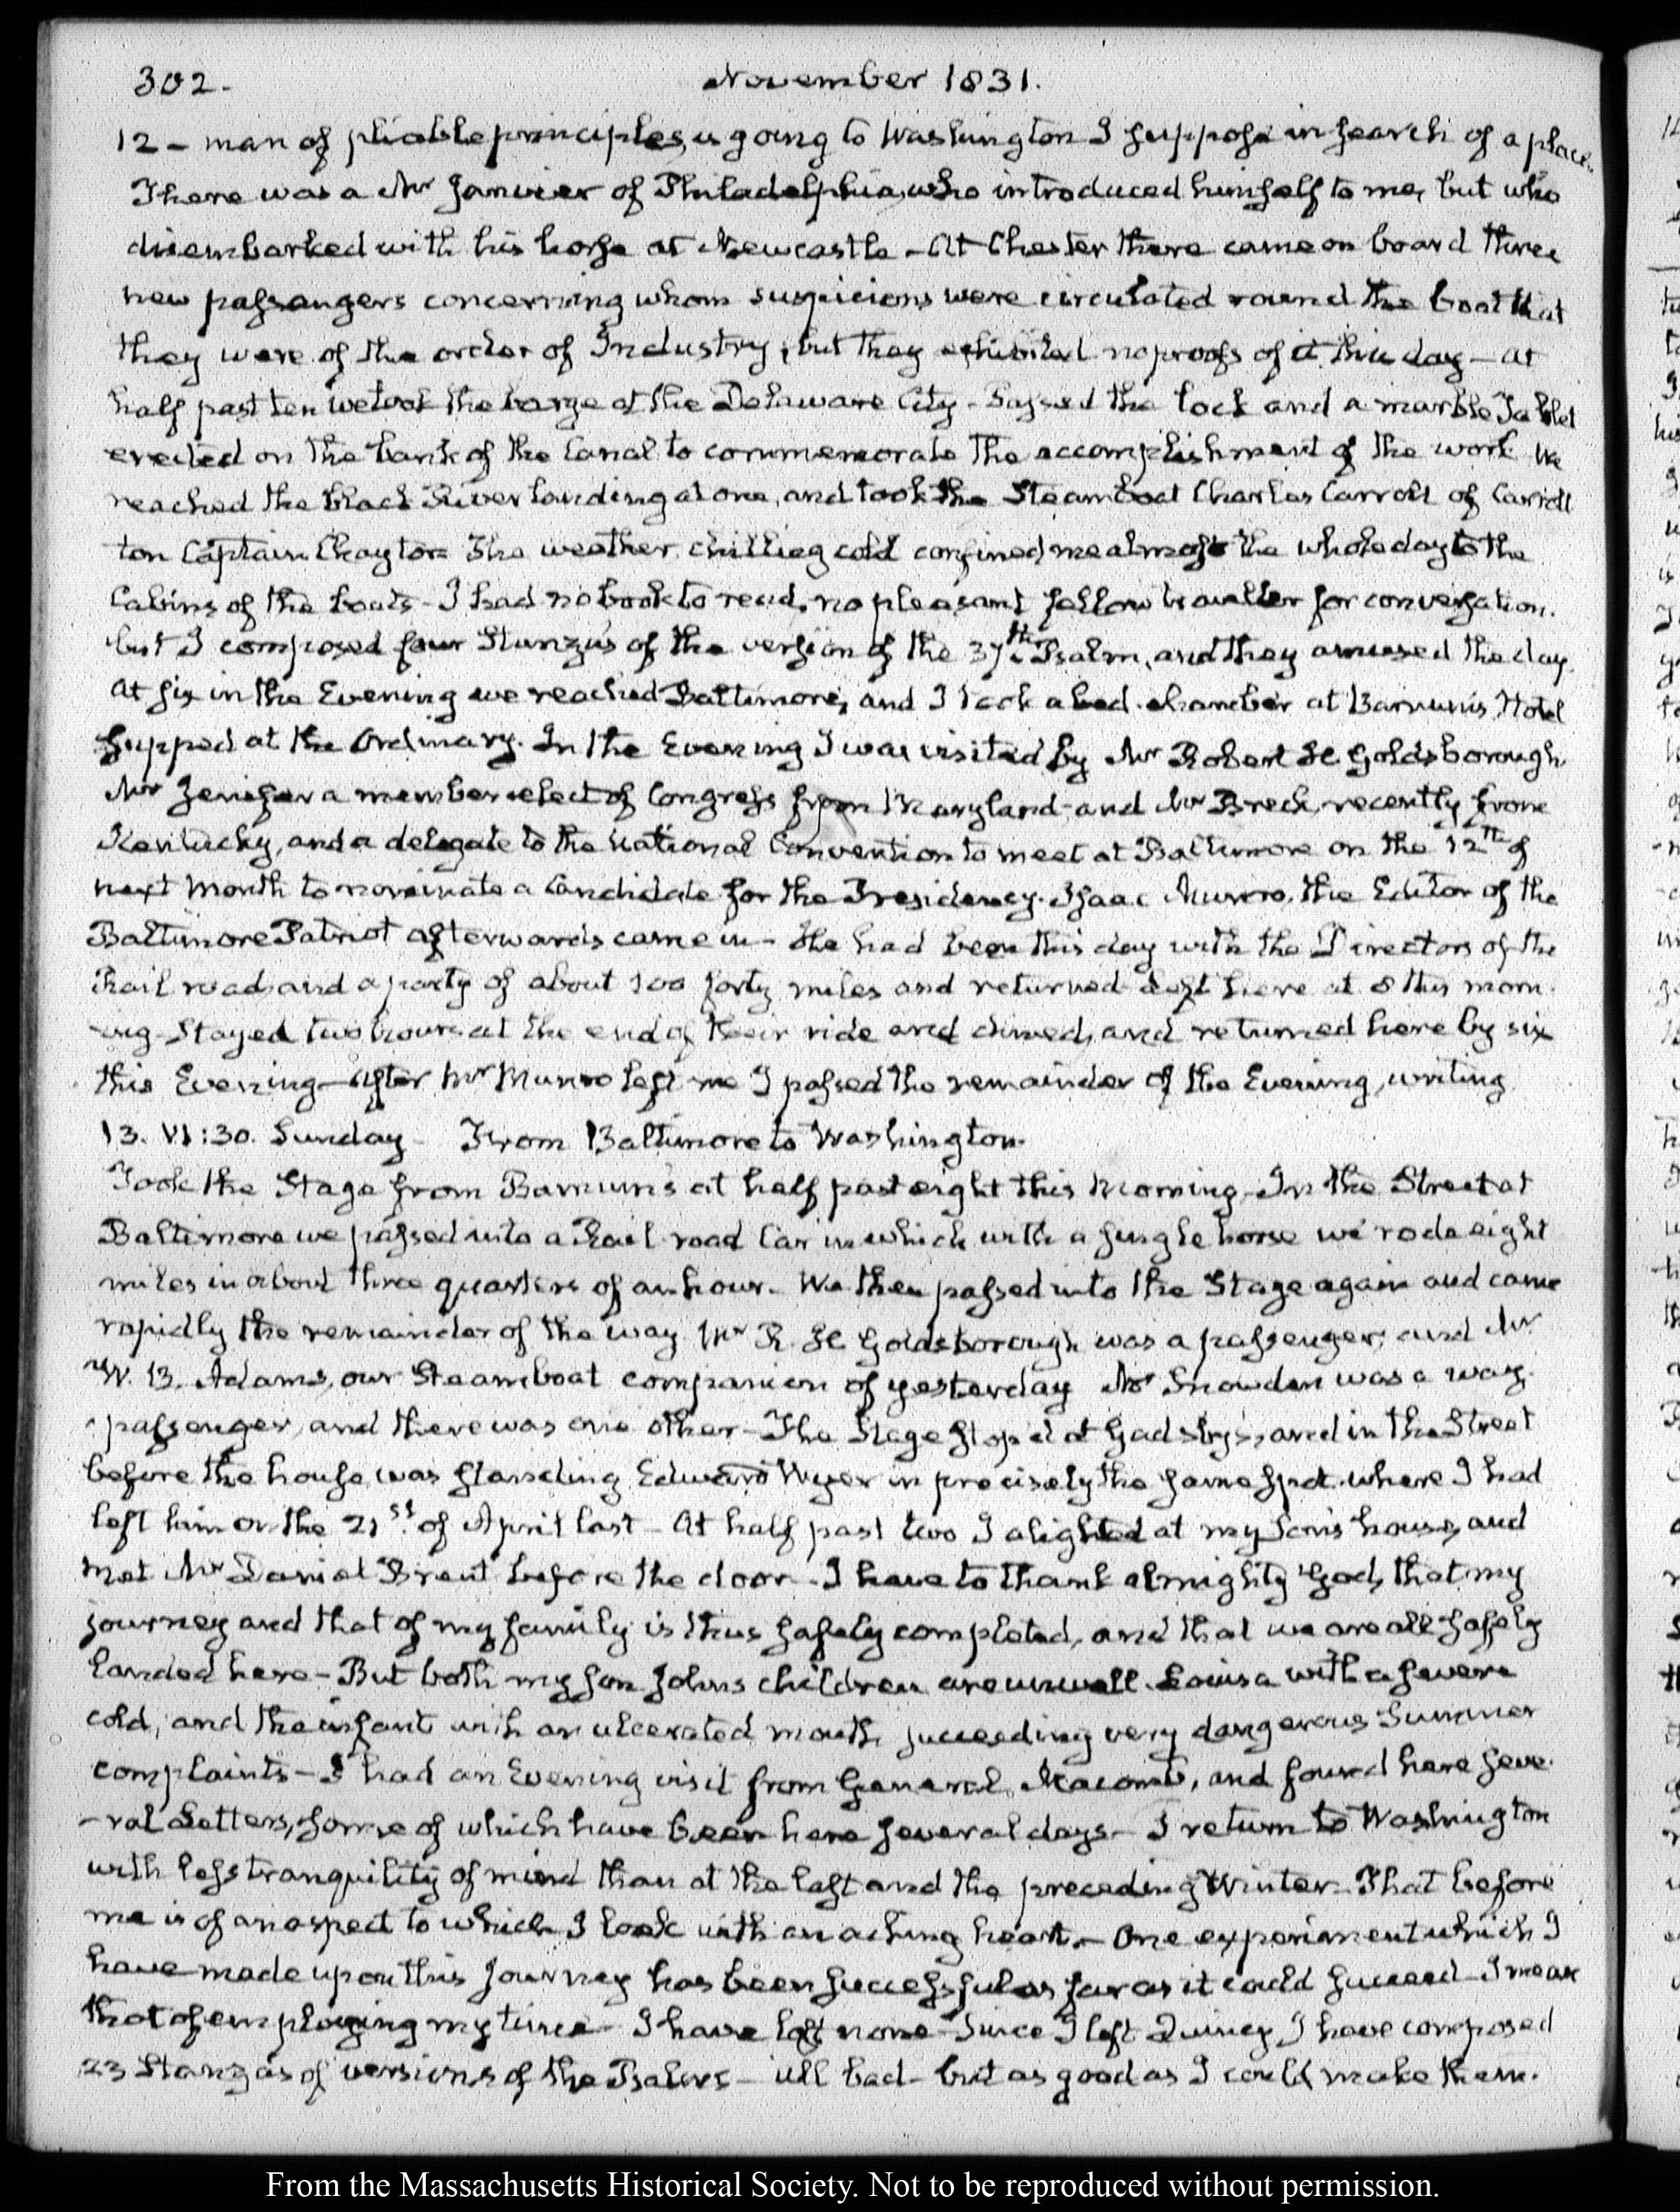 302. November 1831.
12 - man of pliable principles, is going to Washington I suppose in search of a place.
There was a Mr Janvier of Philadelphia, who introduced himself to me, but who
disembarked with his horse at Newcastle - At Chester there came on board three
new passengers concerning whom suspicions were circulated round the boat that
they were of the order of Industry; but they exhibited no proofs of it this day - at
half past ten we took the barge at the Delaware City - Passed the lock and a marble Tablet
erected on the bank of the Canal to commemorate the accomplishment of the work. We
reached the black River landing at one, and took the Steamboat Charles Carroll of Carroll
ton Captain Chaytor. The weather chilling cold confined me almost the whole day to the
Cabins of the boats - I had no book to read, no pleasant fellow traveller for conversation.
but I composed four Stanzas of the version of the 37th Psalm, and they amused the day.
At six in the Evening we reached Baltimore, and I took a bed-chamber at Barnum's Hotel
supped at the Ordinary. In the Evening I was visited by Mr Robert H. Goldsborough
Mr Jenifer a member elect of Congress from Maryland - and Mr Breck, recently from
Kentucky, and a delegate to the National Convention to meet at Baltimore on the 12th of
next Month to nominate a Candidate for the Presidency. Isaac Munro, the Editor of the
Baltimore Patriot afterwards came in - He had been this day with the Directors of the
Rail road, and a party of about 100 forty miles and returned - left here at 8 this morn-
-ing - Stayed two hours at the end of their ride and dined, and returned here by six
this Evening - After Mr Munro left me I passed the remainder of the Evening, writing
13. VI:30. Sunday - From Baltimore to Washington.
Took the Stage from Barnum's at half past eight this Morning - In the Street at
Baltimore we passed into a Rail-road Car in which with a single horse we rode eight
miles in about three quarters of an hour. We then passed into the Stage again and came
rapidly the remainder of the way Mr R. H. Goldsborough was a passenger; and Mr
W. B. Adams, our Steamboat companion of yesterday Mr Snowden was a way-
-passenger, and there was one other - The Stage stop'd at Gadsby's, and in the Street
before the house, was standing Edward Wyer in precisely the same spot where I had
left him on the 21st. of April last - At half past two I alighted at my Son's house, and
met Mr Daniel Brent before the door - I have to thank almighty God, that my
journey and that of my family is thus safely completed, and that we are all safely
landed here - But both my son John's children are unwell. Louisa with a severe
cold, and the infant with an ulcerated mouth, succeeding very dangerous Summer
complaints - I had an Evening visit from General Macomb, and found here seve-
-ral Letters, some of which have been here several days - I return to Washington
with less tranquility of mind than at the last and the preceding Winter - That before
me is of an aspect to which I look with an aching heart. - One experiment which I
have made upon this journey has been successful as far as it could succeed - I mean
that of employing my time - I have lost none - Since I left Quincy I have composed
23 Stanzas of versions of the Psalms - all bad - but as good as I could make them.
From the Massachusetts Historical Society. Not to be reproduced without permission.